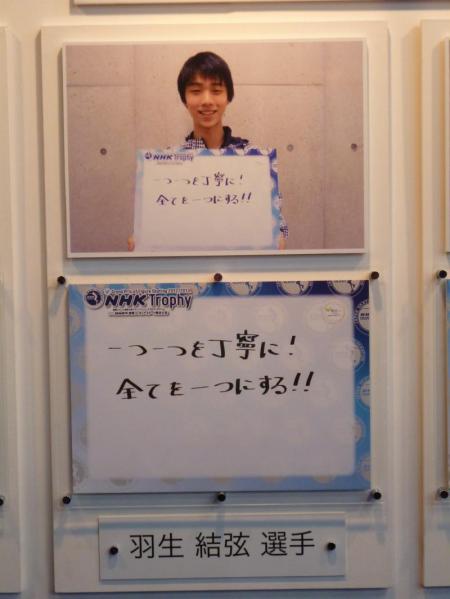 NHK Trophy
一つ一つを丁寧に!
全てを一つにする!!
NHK Trophy
一つ一つを丁寧に!
全てを一つにする!!
羽生 結弦 選手